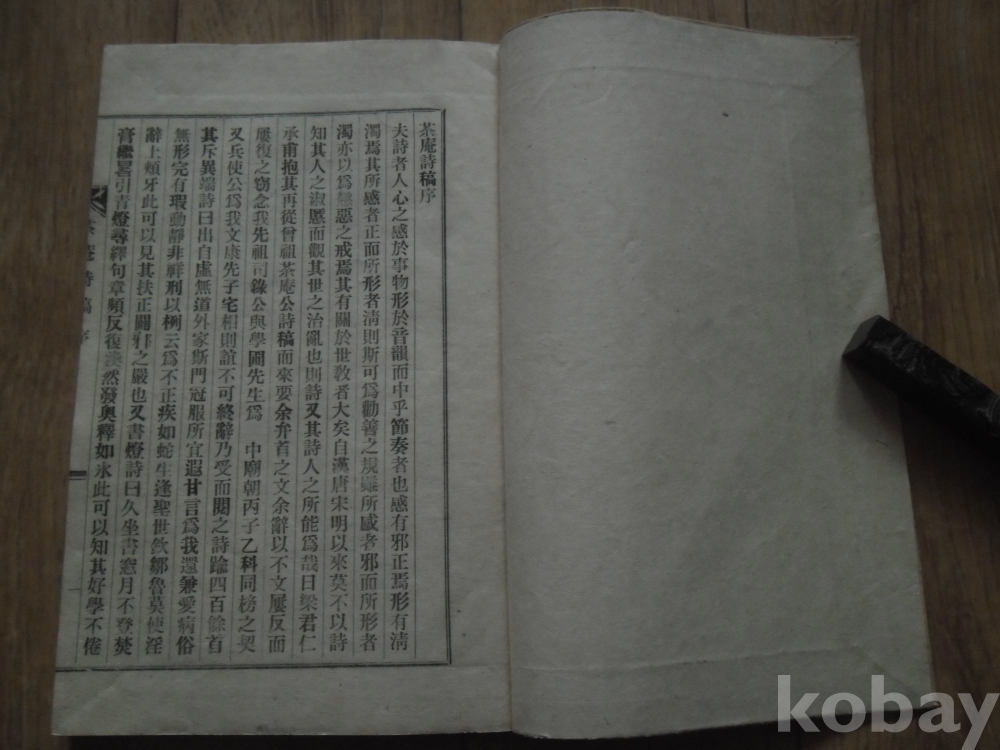 茶庵詩稿序
夫詩者人心之感於事物形於音韻而中乎節奏者也感有邪正焉形有淸
濁焉其所感者正而所形者淸則斯可爲勸善之規雖所感者邪而所形者
濁亦以爲懲惡之戒焉其有關於世敎者大矣自漢唐宋明以來莫不以詩
知其人之淑慝而觀其世之治亂也則詩又其詩人之所能爲哉日梁君仁
承甫抱其再從曾祖茶庵公詩稿而來要余弁首之文余辭以不文屢反而
屢復之竊念我先祖司錄公與學圃先生爲 中廟朝丙子乙科同榜之契
又兵使公爲我文康先子宅相則誼不可終辭乃受而閱之詩踰四百餘首
其斥異端詩曰出自虛無道外家斯門冠服所宜遐甘言爲我還兼愛病俗
無形完有瑕動靜非祥刑以柳云爲不正疾如蛇生逢聖世欽鄒魯莫使淫
辭上頰牙此可以見其扶正闢邪之嚴也又書燈詩曰久坐書窓月不登焚
膏繼晷引靑燈尋繹句章頻反復渙然發奧釋如氷此可以知其好學不倦
茶庵詩稿 序
kobay